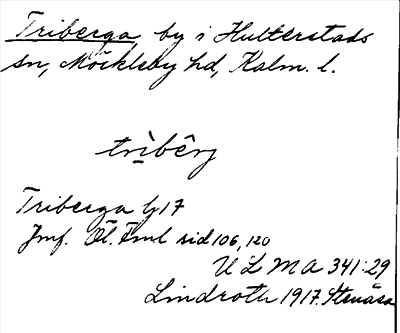 Triberga by i Hulterstads
sn, Möckleby hd, Kalm. l.
trìbêrj
Triberga bj 17
Jmf. Öl. Fml sid 106, 120
ULMA 341:29
Lindroth 1917. Stenåsa